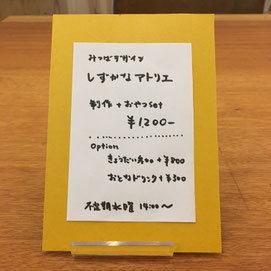 みつばデザイン
しずかなアトリエ
制作 + おやつset
¥1,200-
Option
きょうだい参加 + ¥800
おとなドリンク + ¥300
不定期水曜 14:00〜